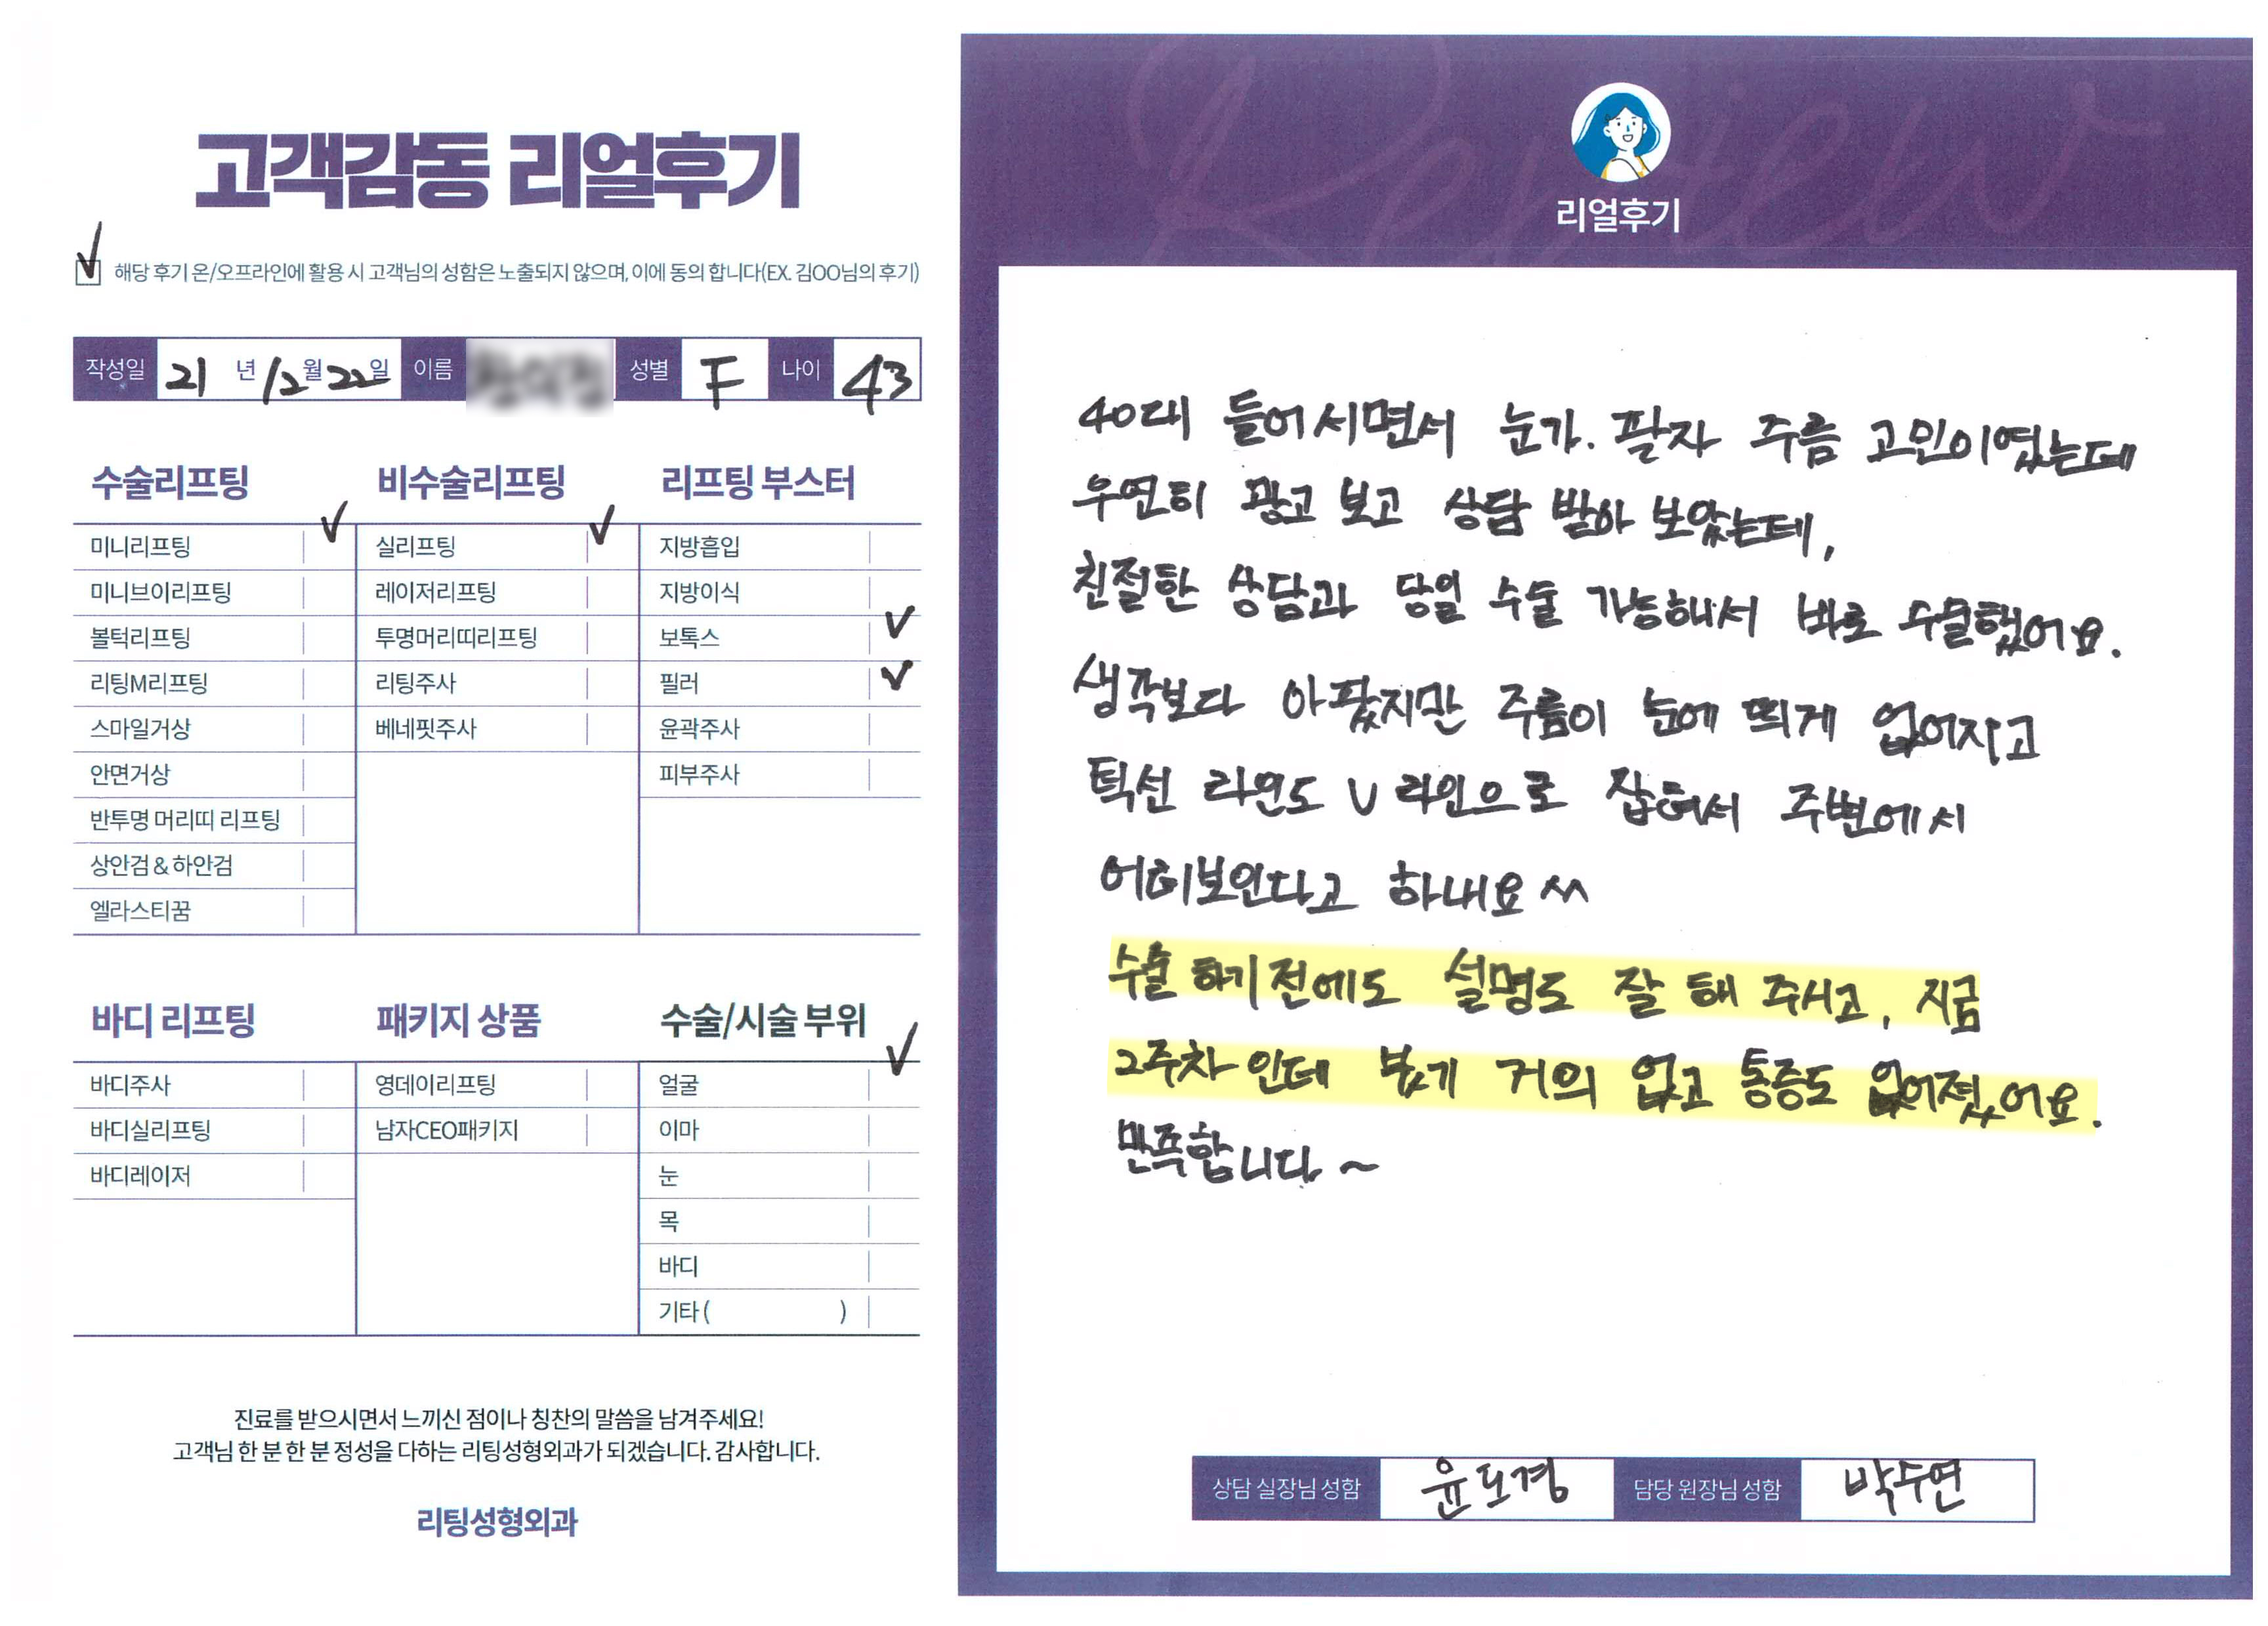 고객감동 리얼후기
해당 후기 온/오프라인에 활용 시 고객님의 성함은 노출되지 않으며, 이에 동의 합니다(EX. 김OO님의 후기)
작성일 21 년 12 월 22 일 이름 성별 F 나이 43
수술리프팅
미니리프팅
미니브이리프팅
볼턱리프팅
리팅M리프팅
스마일거상
안면거상
반투명 머리띠 리프팅
상안검 & 하안검
엘라스티꿈
비수술리프팅
실리프팅
레이저리프팅
투명머리띠리프팅
리팅주사
베네핏주사
리프팅 부스터
지방흡입
지방이식
보톡스
필러
윤곽주사
피부주사
바디 리프팅
바디주사
바디실리프팅
바디레이저
패키지 상품
영데이리프팅
남자CEO패키지
수술/시술 부위
얼굴
이마
눈
목
바디
기타 ( )
진료를 받으시면서 느끼신 점이나 칭찬의 말씀을 남겨주세요!
고객님 한 분 한 분 정성을 다하는 리팅성형외과가 되겠습니다. 감사합니다.
리팅성형외과
Review
리얼후기
40대 들어서면서 눈가. 팔자 주름 고민이였는데
우연히 광고 보고 상담 받아 보았는데,
친절한 상담과 당일 수술 가능해서 바로 수술했어요.
생각보다 아팠지만 주름이 눈에 띄게 없어지고
턱선 라인도 V라인으로 잡혀서 주변에서
어려보인다고 하내요 ^^
수술 하기 전에도 설명도 잘 해 주시고, 지금
2주차 인데 붓기 거의 없고 통증도 없어졌어요.
만족합니다 ~
상담 실장님 성함 윤도경 담당 원장님 성함 박수연